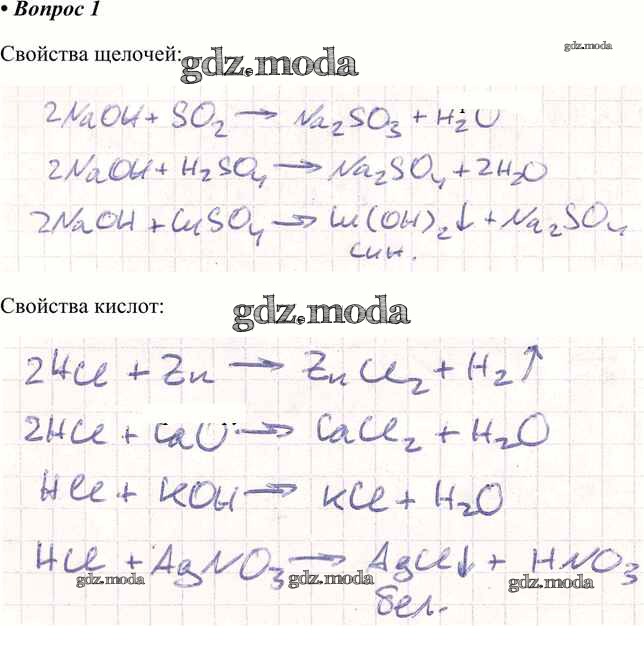 • Вопрос 1
gdz.moda
Свойства щелочей:
gdz.moda
2NaOH + SO₂ → Na₂SO₃ + H₂O
2NaOH + H₂SO₄ → Na₂SO₄ + 2H₂O
2NaOH + CuSO₄ → Cu(OH)₂↓ + Na₂SO₄
син.
Свойства кислот:
gdz.moda
2HCl + Zn → ZnCl₂ + H₂↑
2HCl + CaO → CaCl₂ + H₂O
HCl + KOH → KCl + H₂O
HCl + AgNO₃ → AgCl↓ + HNO₃
бел.
gdz.moda
gdz.moda
gdz.moda